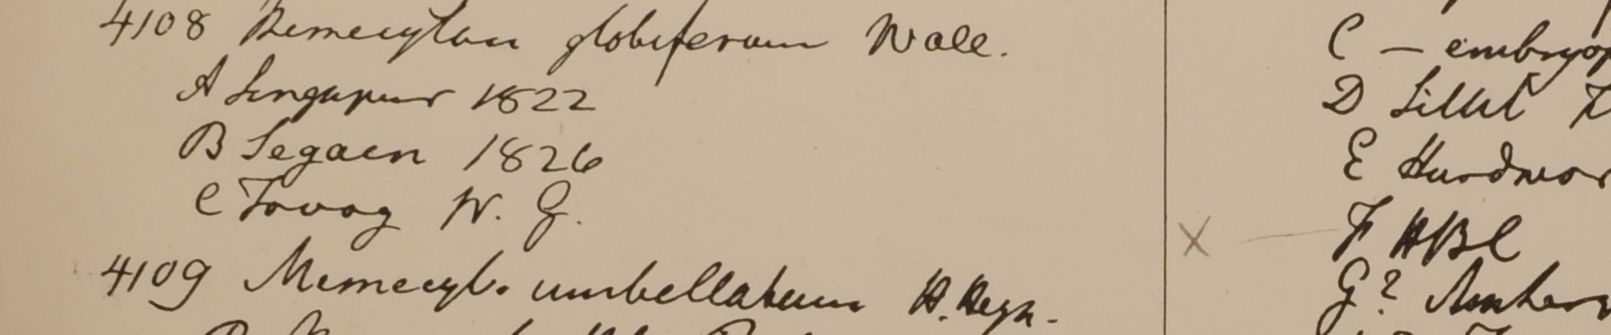 4108 Memecylon globiferum Wall.
A Singapur 1822
B Segaen 1826
C Tavoy W. G.
4109 Memecyl. umbellatum H. Heyn.
C — embryop
D Sillet
E Hurdwar
F HBC
G? Amhers